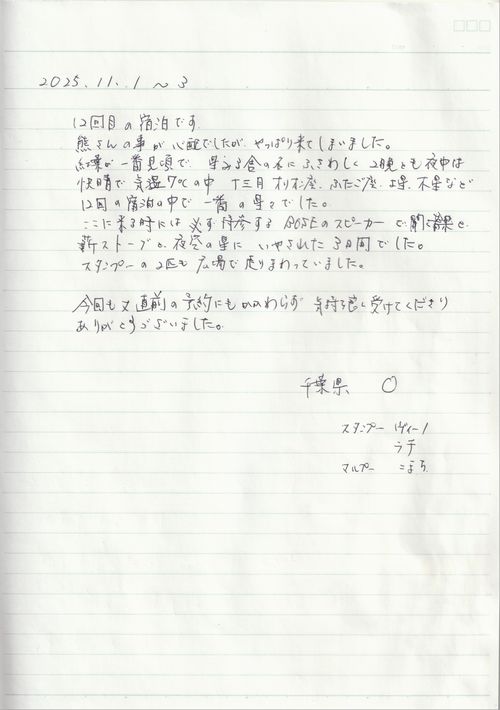 2025.11.1 〜3
12回目の宿泊です。
熊さんの事が心配でしたが、やっぱり来てしまいました。
紅葉が一番見頃で 星ふる舎の名にふさわしく 2晩とも夜中は
快晴で気温7℃の中 十三月 オリオン座、ふたご座、土星、木星など
12回の宿泊の中で 一番の星々でした。
ここに来る時には 必ず持参する BOSEのスピーカーで聞く音楽と
薪ストーブと、夜空の星に いやされた3日間でした。
スタンプーの2匹も広場で走りまわっていました。
今回も又直前の予約にもかかわらず 気持ち良く受けてくださり
ありがとうございました。
千葉県 〇
スタンプー ヴィーノ
ラテ
マルプー こまち